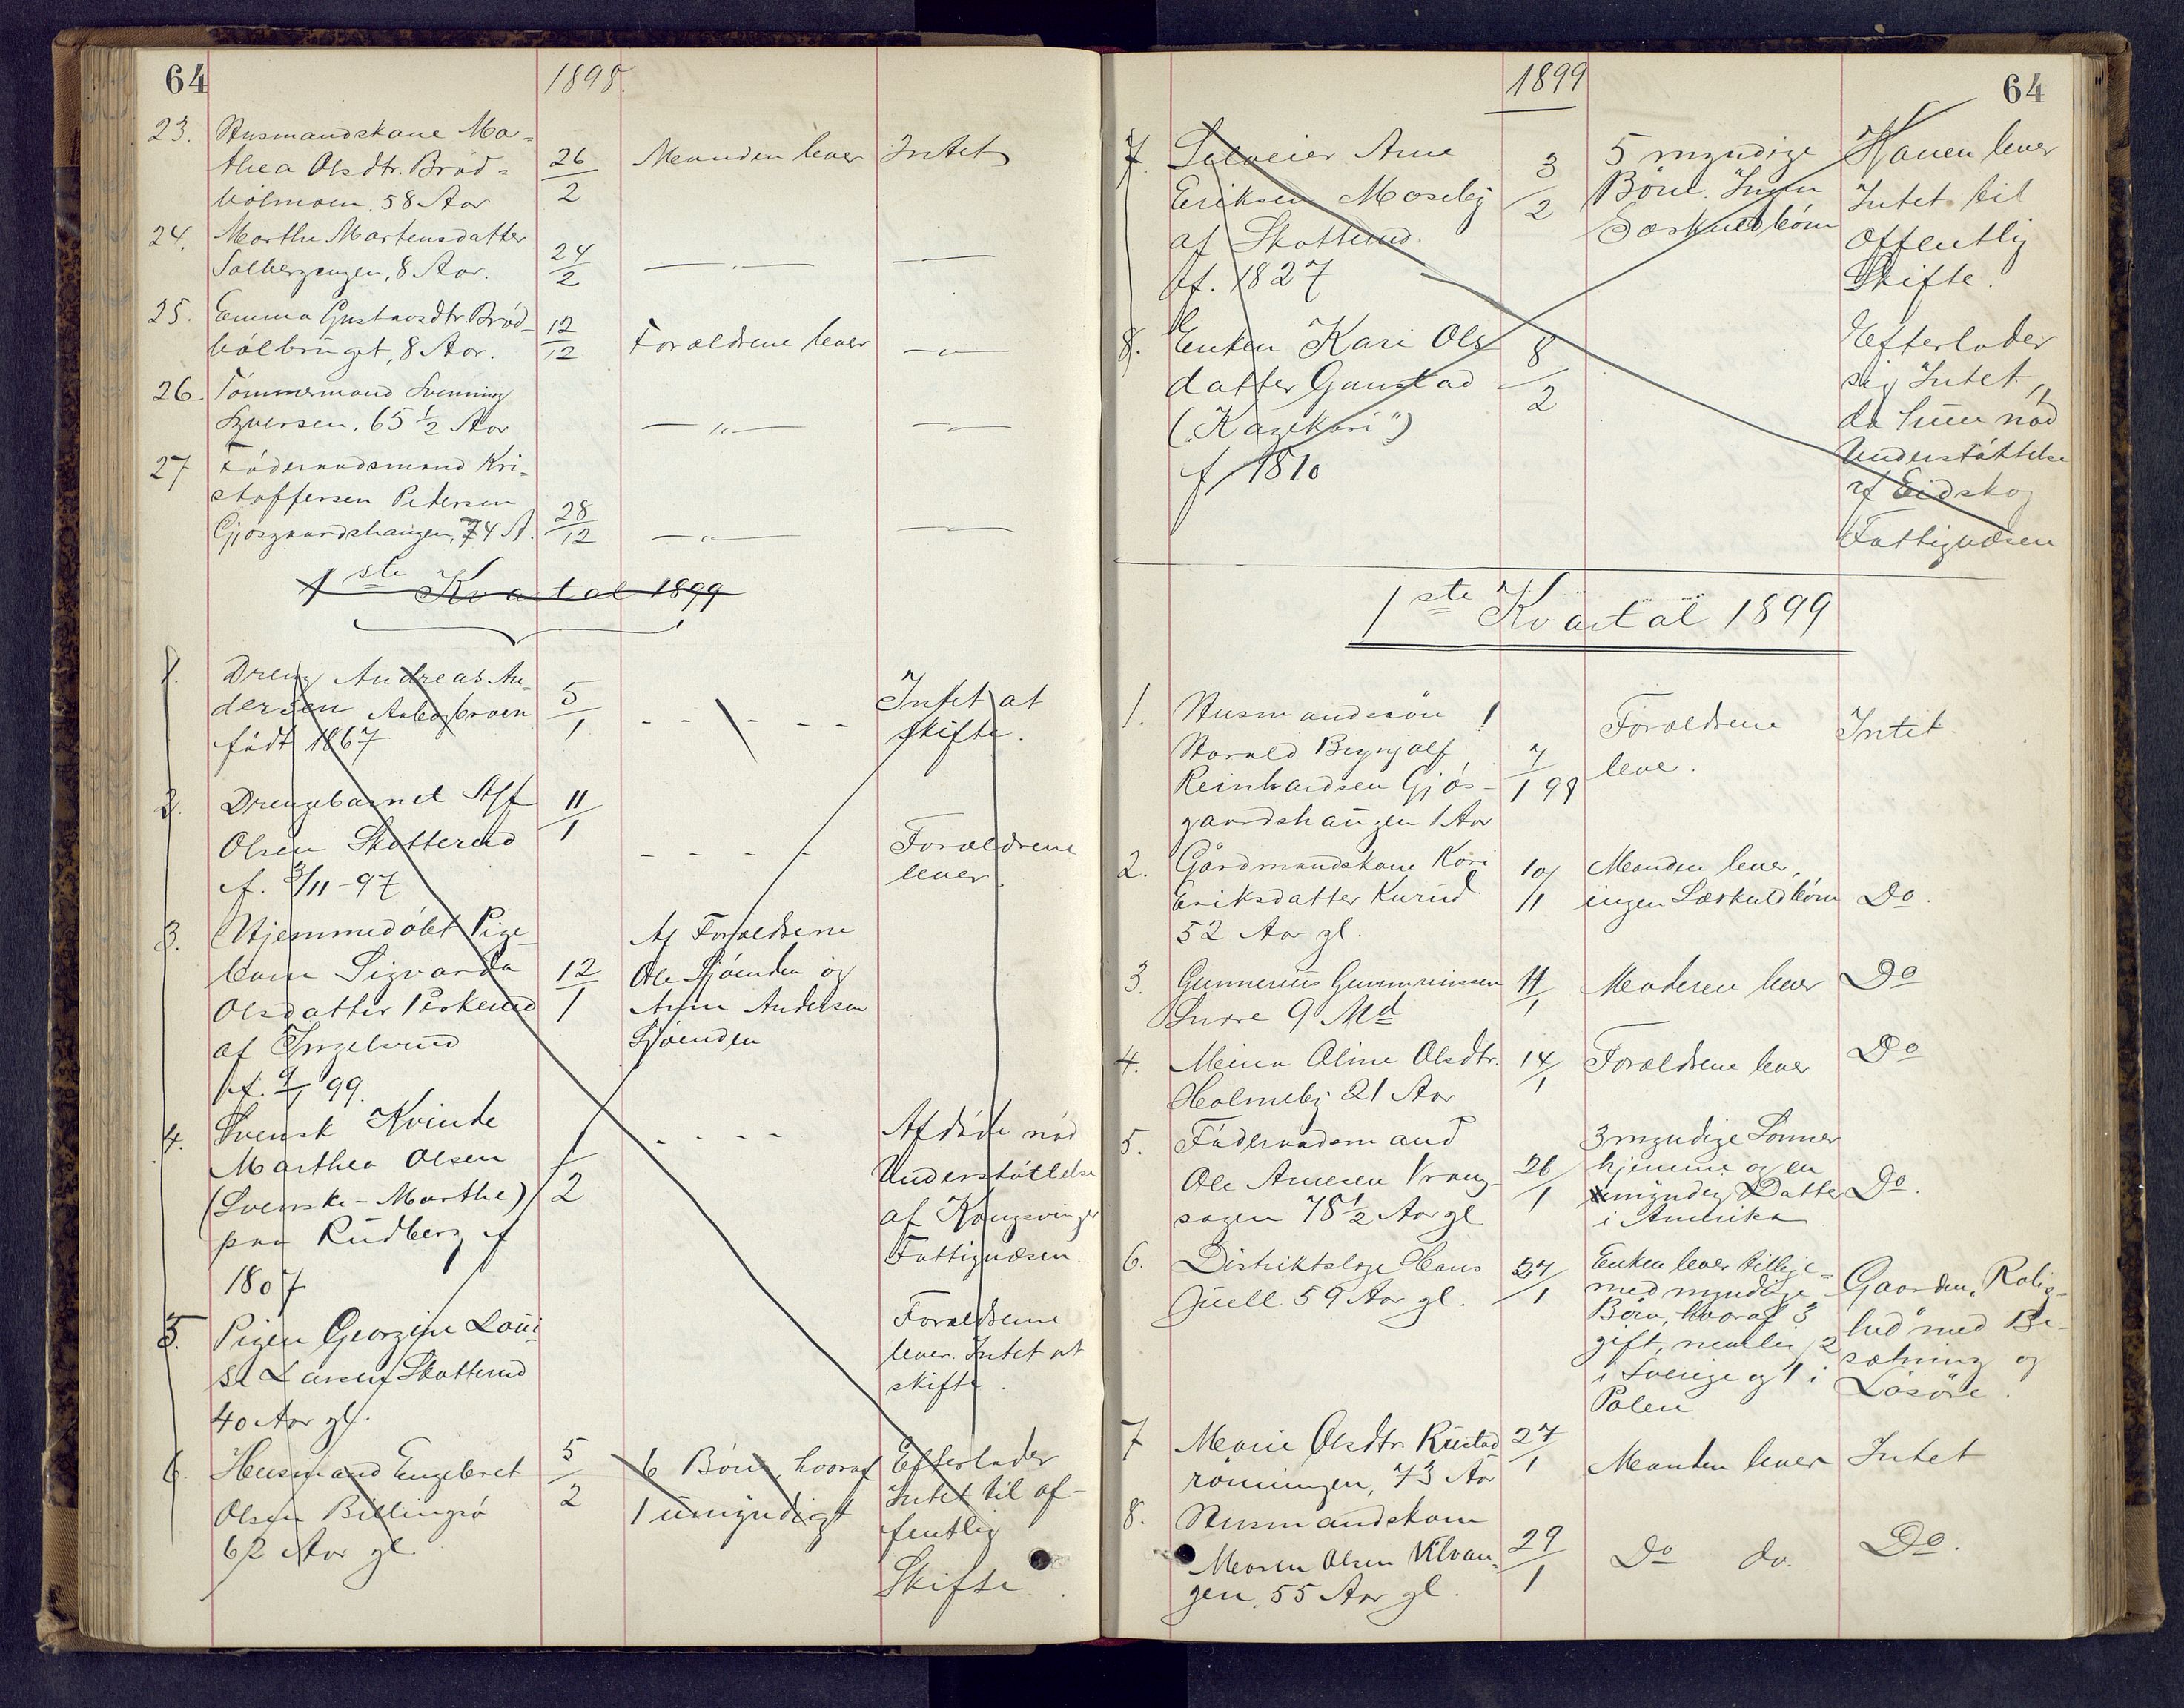 64
1898.
23. Husmandskone Ma-
thea Olsdtr. Bröd-
bölmoen. 58 Aar
26/2
Manden lever
Intet
24. Marthe Martensdatter
Solbergengen, 8 Aar.
24/2
— " —
—
25. Emma Gustavsdtr. Bröd-
bölbruget, 8 Aar.
12/12
Forældrene lever
— " —
26. Tömmermand Svenning
Syversen, 65 1/2 Aar
— " —
— " —
27 Föderaadsmand Kri-
stoffersen Petersen
Gjøsgaardshaugen, 74 A.
28/12
— " —
— " —
1ste Kvartal 1899
1. Dreng Andreas An-
dersen
födt 1867
5/1
- - - - -
Intet at
skifte.
2. Drengebarnet Alf
Olsen Skotterud
f. 3/11 - 97
11/1
- - - -
Forældrene
lever
3. Hjemmedöbt Pige-
barn Sigvarda
Olsdatter Perkerud
af Ingelsrud
f. 9/1 99.
12/1
Af Forældrene
Ole Sjöenden og
Anne Andersen
Sjöenden
4. Svensk Kvinde
Marthea Olsen
(Svenske-Marthe)
paa Rudberg f
1807
1/2
- - - -
Afdöde nöd
Understöttelse
af Kongsvinger
Fattigvæsen
5. Pigen Georgine Loui-
se Larsen Skotterud
40 Aar gl.
Forældrene
lever. Intet at
skifte.
6. Husmand Engebret
Olsen Billingsö
62 Aar gl.
5/2
6 Börn, hvoraf
1 umyndigt
Efterlader
Intet til of-
fentlig
Skifte.
1899
64
7. Selveier Arne
Eriksen Moseby
af Skotterud.
f. 1827
3/2
5 myndige
Börn. Ingen
Særkuldbörn
Konen lever
Intet til
Offentlig
Skifte.
8. Enken Kari Ols
datter Ganstad
("Kagekari")
f. 1810
8/2
Efterlader
sig Intet,
da hun nöd
Understöttelse
af Eidskog
Fattigvæsen
1ste Kvartal 1899
1. Husmandssön
Harald Brynjolf
Reinhardsen Gjös-
gaardshaugen 1 Aar
7/1 99
Forældrene
lever.
Intet
2. Gårdmandskone Kari
Eriksdatter Kurud
52 Aar gl.
10/1
Manden lever,
ingen Særkuldbörn
Do.
3. Gunnerius Gunnerinssen
9 Md
11/1
Moderen lever
Do
4. Meina Oline Olsdtr.
Holmeby 21 Aar
14/1
Forældrene lever
Do
5. Föderaadsmand
Ole Arnesen Vrang-
sagen 78 1/2 Aar gl
26/1
3 myndige Sönner
hjemme og en
myndig Datter
i Amerika
Do.
6. Distriktslæge Hans
Juell 59 Aar gl.
27/1
Enken lever tillige-
med myndige
Börn, hvoraf 3
gift, nemlig 2
i Sverige og 1 i
Polen
Gaarden, Rolig-
hed med Be-
sætning og
Lösöre.
7 Marie Olsdtr. Rustad
rönningen, 73 Aar
27/1
Manden lever
Intet
8. Husmandskone
Maren Olsen Vilvan-
gen, 55 Aar gl.
29/1
Do do.
Do.